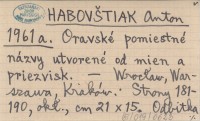 HABOVŠTIAK Anton
1961 a. Oravské pomiestné
názvy utvorené od mien a
priezvisk. — Wrocław, War-
szawa, Kraków. Strony 181-
190, okł., cm 21 x 15. Odbitka